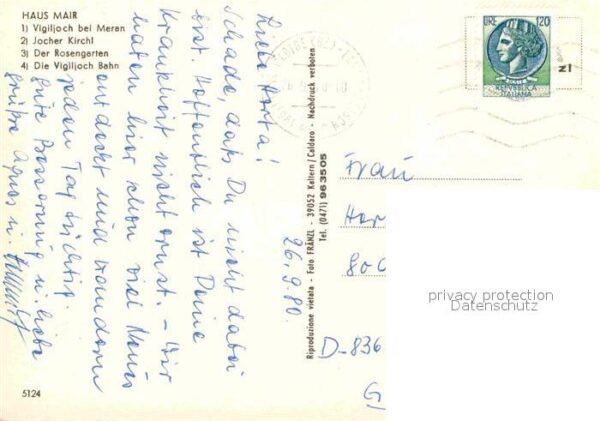 HAUS MAIR
1) Vigiljoch bei Meren
2) Jocher Kirchl
3) Der Rosengarten
4) Die Vigiljoch Bahn
26.9.80.
Liebe Herta!
Schade, daß Du nicht dabei
bist. Hoffentlich ist Deine
Krankheit nicht ernst. – Wir
haben hier schon viel Neues
entdeckt und wandern
jeden Tag tüchtig.
gute Besserung u. liebe
Grüße Agnes u.
5124
Riproduzione vietata - Foto FRÄNZL - 39052 Kaltern/Caldaro - Nachdruck verboten
Tel. (0471) 963505
LIRE 120
REPVBBLICA
ITALIANA
N1
Frau
Her
800
D-836
G
privacy protection
Datenschutz